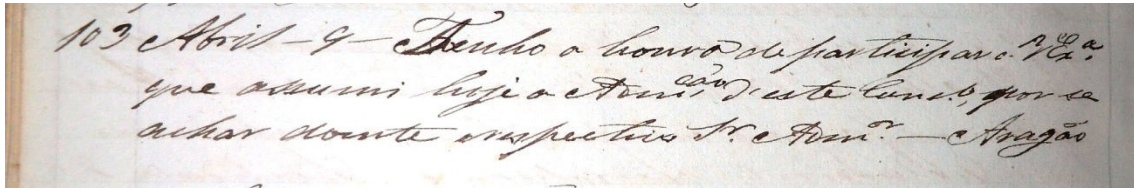 103 Abril - 9 - Tenho a honra de participar a V. Ex.ª
que assumi hoje a Adm.ção d'este Conc.º, por se
achar doente o respectivo Sr. Adm.or — Aragão